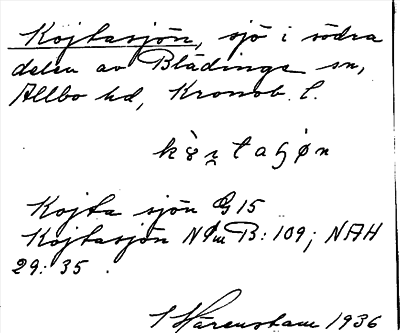 Kojtasjön, sjö i södra
delen av Blädinge sn,
Allbo hd, Kronob. l.
Kojta sjön G 15
Kojtasjön NÖm B: 109; NAH
29: 35.
Härenstam 1936